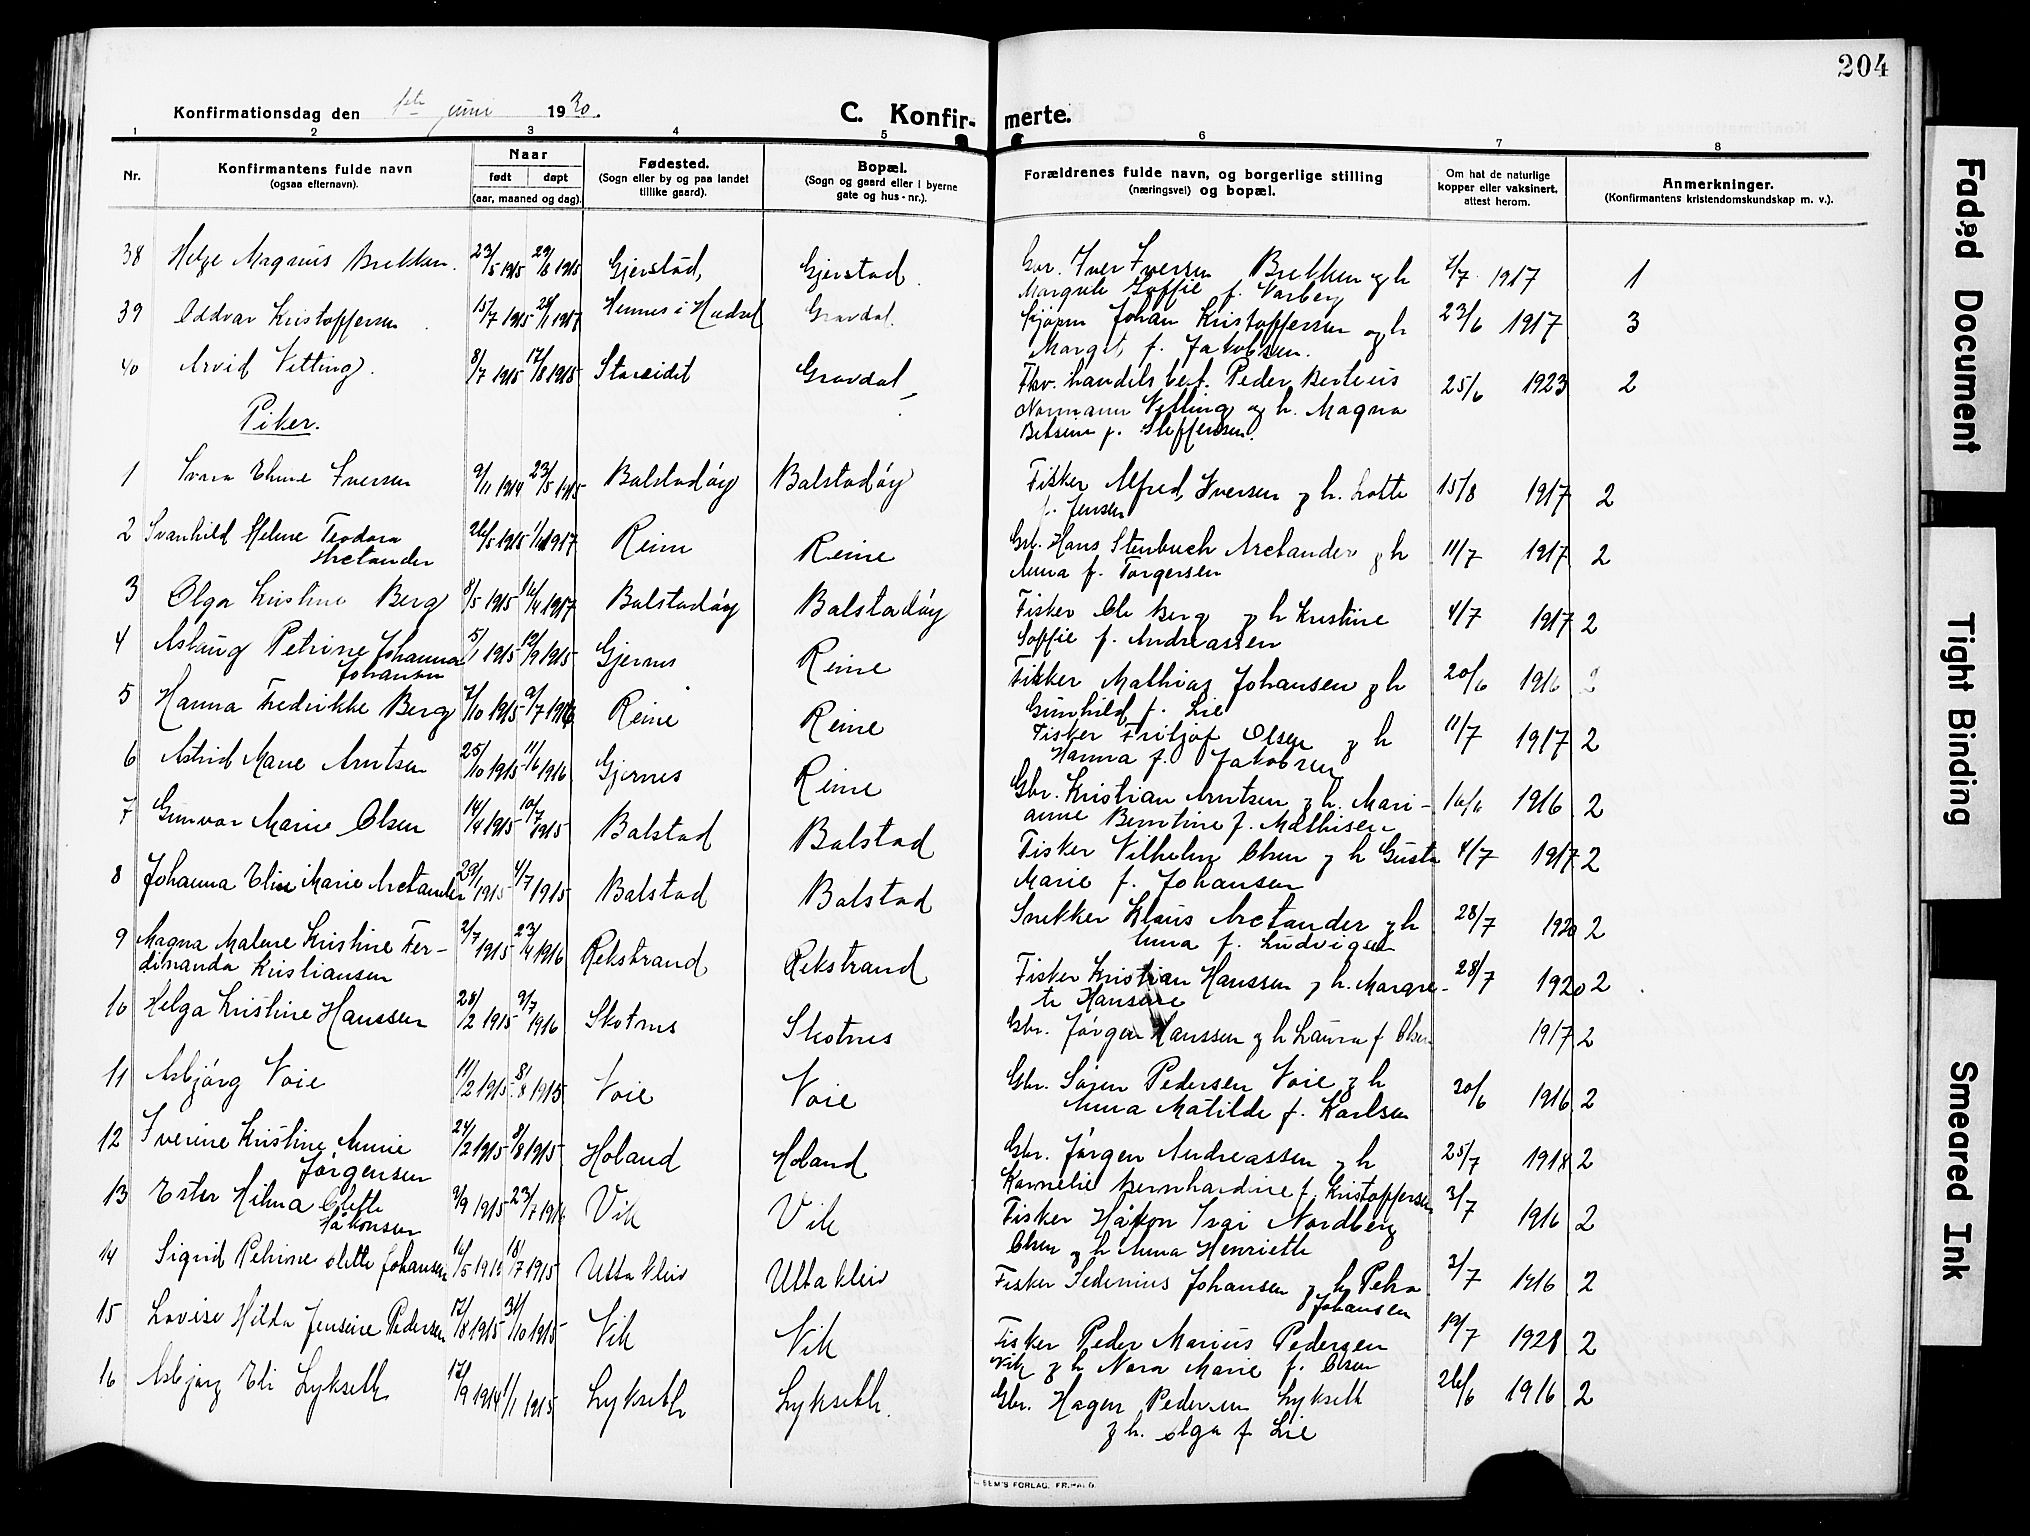 204
Konfirmationsdag den 1ste juni 1930.
C. Konfir- merte.
1 2 3 4 5 6 7 8
Nr.
Konfirmantens fulde navn
(ogsaa efternavn).
Naar
født døpt
(aar, maaned og dag).
Fødested.
(Sogn eller by og paa landet
tillike gaard).
Bopæl.
(Sogn og gaard eller i byerne
gate og hus-nr.).
Forældrenes fulde navn, og borgerlige stilling
(næringsvei) og bopæl.
Om hat de naturlige
kopper eller vaksinert.
attest herom.
Anmerkninger.
(Konfirmantens kristendomskundskap m. v.).
38 Helge Magnus Brekken. 23/5 1915 29/8 1915 Gjerstad, Gjerstad. Gbr. Iver Iversen Brekken og h 4/7 1917 1
Margrete Soffie f. Varberg
39 Oddvar Kristoffersen 15/7 1915 28/1 1917 Hennes i Hadsel Gravdal. Skjøpm Johan Kristoffersen og h 23/6 1917 3
Margit f. Jakobsen.
40 Arvid Vetting. 8/7 1915 17/8 1915 Storeidet Gravdal Fhv. handels best. Peder Berteus 25/6 1923 2
Normann Vetting og h. Magna
Betsine f. Steffensen.
Piker.
1 Svara Elune Iversen 9/11 1914 23/5 1915 Balstadøy Balstadøy Fisker Alfred Iversen og h. Lotte 15/8 1917 2
f. Jensen
2 Svanhild Helene Teodora 26/5 1915 1/11 1917 Reine Reine Gbr. Hans Stenbuch Arctander og h 11/7 1917 2
Arctander
Anna f. Torgersen
3 Olga Kristine Berg 8/5 1915 16/4 1917 Balstadøy Balstadøy Fisker Ole Berg og h Kristine 4/7 1917 2
Soffie f. Andreassen
4 Aslaug Petrine Johanna 5/1 1915 12/9 1915 Gjernes Reine Fisker Mathias Johansen og h 20/6 1916 2
Johansen
Gunhild f. Lie
5 Hanna Fredrikke Berg 7/10 1915 9/7 1916 Reine Reine Fisker Fritjof Olsen og h 11/7 1917 2
Hanna f. Jakobsen
6 Astrid Marie Arntsen 25/10 1915 11/6 1916 Gjernes Reine Gbr. Kristian Arntsen og h. Mari- 16/6 1916 2
anne Berntine f. Mathisen
7 Gunvor Marie Olsen 14/4 1915 10/7 1915 Balstad Balstad Fisker Vilhelm Olsen og h Gusta 4/7 1917 2
Marie f. Johansen
8 Johanna Eline Marie Arctander 29/1 1915 4/7 1915 Balstad Balstad Snekker Klaus Arctander og h 28/7 1920 2
Anna f. Ludvigsen
9 Magna Malene Kristine Fer- 2/7 1915 23/4 1916 Rekstrand Rekstrand Fisker Kristian Hanssen og h. Margre- 28/7 1920 2
dinanda Kristiansen
te Hansine
10 Helga Kristine Hanssen 28/2 1915 9/7 1916 Skotnes Skotnes Gbr. Jørgen Hanssen og h Laura f Olsen 1917 2
11 Asbjørg Voie 11/2 1915 8/8 1915 Voie Voie Gbr. Søren Pedersen Voie og h 20/6 1916 2
Anna Matilde f. Karlsen
12 Iverine Kristine Annie 24/2 1915 8/8 1915 Holand Holand Gbr. Jørgen Andreassen og h 25/7 1918 2
Jørgensen
Kornelie Bernhardine f. Kristoffersen
13 Ester Hilma Olette 9/9 1915 23/7 1916 Vik Vik Fisker Håkon Isai Nordberg 3/7 1916 2
Håkonsen
Olsen og h Anna Henriette
14 Sigrid Petrine Olette Johansen 16/5 1915 18/7 1915 Uttakleiv Uttakleiv Fisker Sedenius Johansen og h Petra 3/7 1916 2
Johansen
15 Lovise Hilda Jensine Pedersen 17/8 1915 31/10 1915 Vik Vik Fisker Peder Marius Pedersen 19/7 1928 2
Vik og h Nora Marie f. Olsen
16 Asbjørg Eli Lykseth 17/9 1914 1/1 1915 Lykseth Lykseth. Gbr. Hagen Pedersen Lykseth 26/6 1916 2
og h. Olga f. Lie
SEM'S FORLAG, FR.HALD.
Faded Document
Tight Binding
Smeared Ink